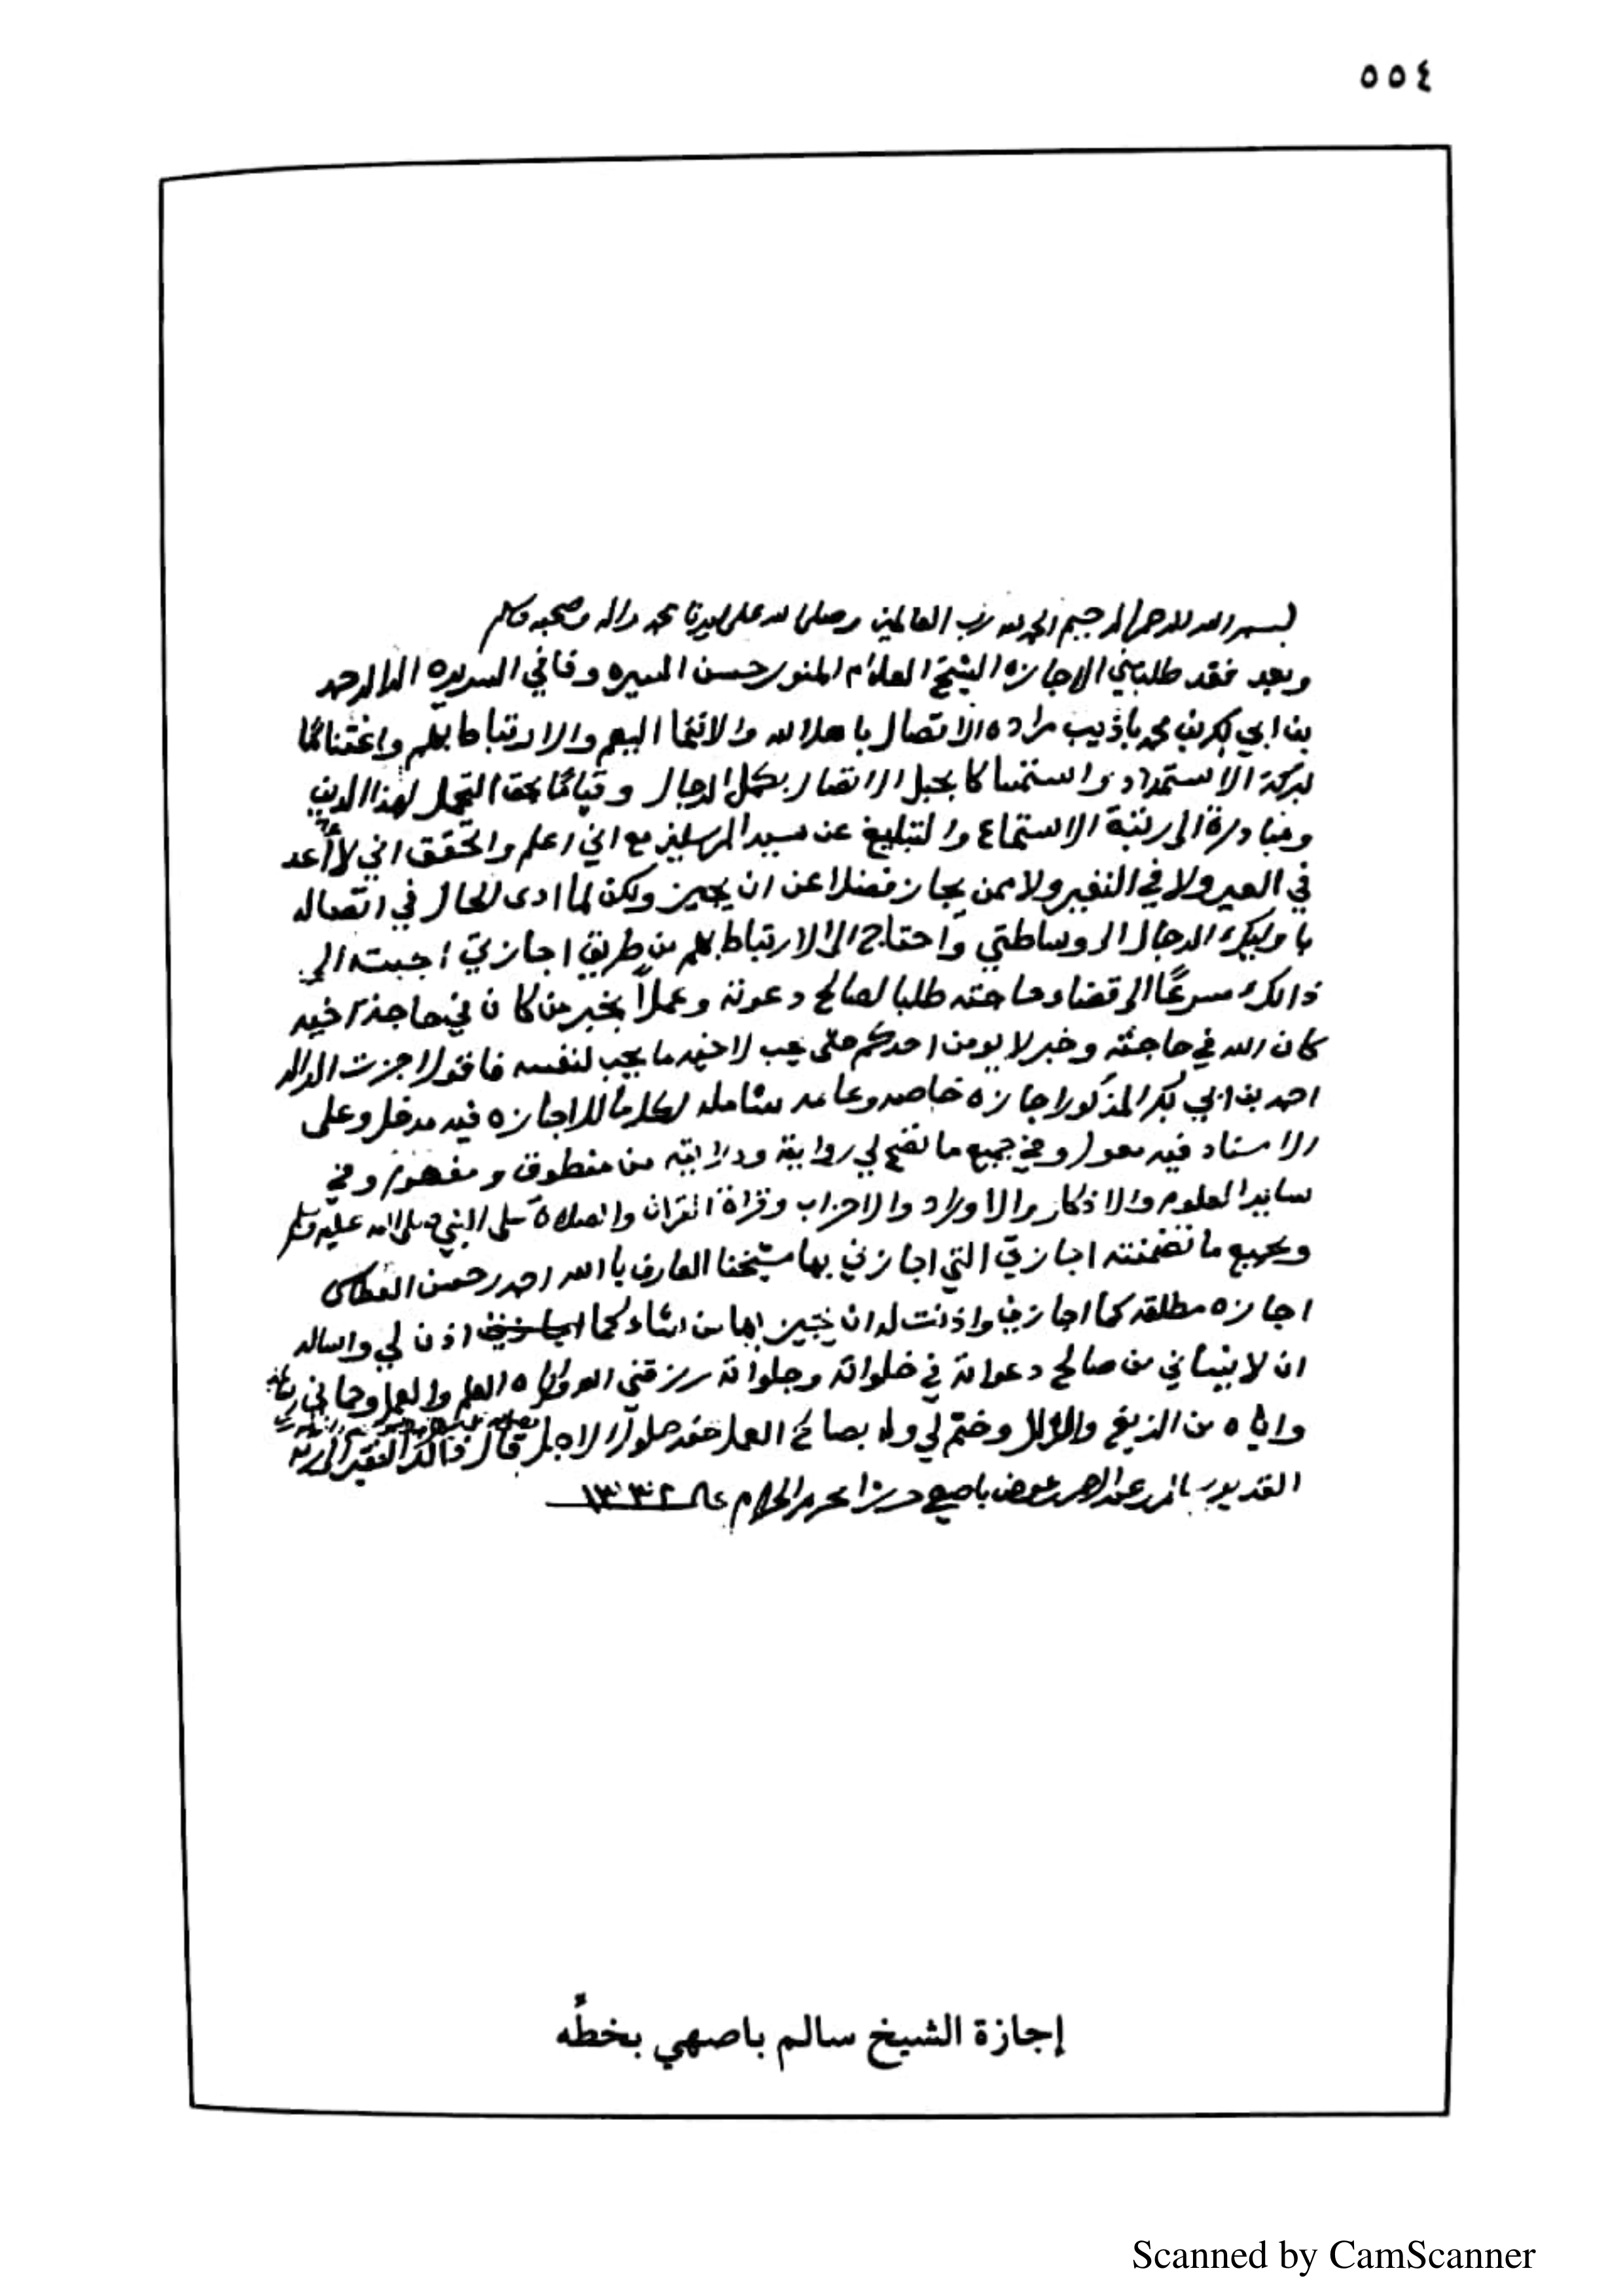 ٥٥٤
بسم الله الرحمن الرحيم الحمد لله رب العالمين وصلى الله على سيدنا محمد واله وصحبه وسلم
وبعد فقد طلب مني الاجازه الشيخ العلام المنور حسن السيره وصافي السريره الوالد احمد
بن ابي بكر بن محمد باذيب مراده الاتصال باهل الله والانتما اليهم والارتباط بهم واغتنامًا
لبركة الاستمداد واستمساكا بحبل الاتصال بكمل الرجال وقيامًا بحق التحمل لهذا الدين
ومبادرة الى رتبة الاستماع والتبليغ عن سيد المرسلين مع اني اعلم واتحقق اني لا أعد
في العير ولا في النفير ولا ممن يجاز فضلا عن ان يجيز ولكن لما ادى الحال في اتصاله
باوليك الرجال الى وساطتي واحتاج الى الارتباط بهم من طريق اجازتي اجبته الى
ذالك مسرعًا الى قضاء حاجته طلبا لصالح دعوته وعملاً بخبر من كان في حاجة اخيه
كان الله في حاجته وخبر لا يومن احدكم حتى يحب لاخيه ما يحب لنفسه فاقول اجزت الوالد
احمد بن ابي بكر المذكور اجازه خاصه وعامه شامله لكل ما للاجازه فيه مدخل وعلى
الاسناد فيه معول وفي جميع ما تصح لي روايته ودرايته من منطوق ومفهوم وفي
ساير العلوم والاذكار والاوراد والاحزاب وقراة القران والصلاة على النبي صلى الله عليه وسلم
وبجميع ما تضمنته اجازتي التي اجازني بها شيخنا العارف بالله احمد بن حسن العطاس
اجازه مطلقه كما اجازني واذنت له ان يجيز بها من شاء كما اذن لي واساله
ان لا ينساني من صالح دعواته في خلواته وجلواته رزقني الله واياه العلم والعمل وحماني
واياه من الزيغ والزلل وختم لي وله بصالح العمل عند حلول الاجل قال ذالك الفقير الى
القدير سالم بن عبدالرحمن عوض باصهي حرر محرم الحرام ١٣٣٢
إجازة الشيخ سالم باصهي بخطّه
Scanned by CamScanner